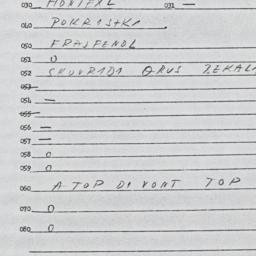 030 MONTEXL 031 —
040 POKRISHKI
050 FRAJFENDL
051 0
052 SKUVRIDI QRUS ZEKAL
053 —
054 —
055 —
056 —
057 —
058 0
059 0
060 A TOP DI VONT TOP
070 0
080 0